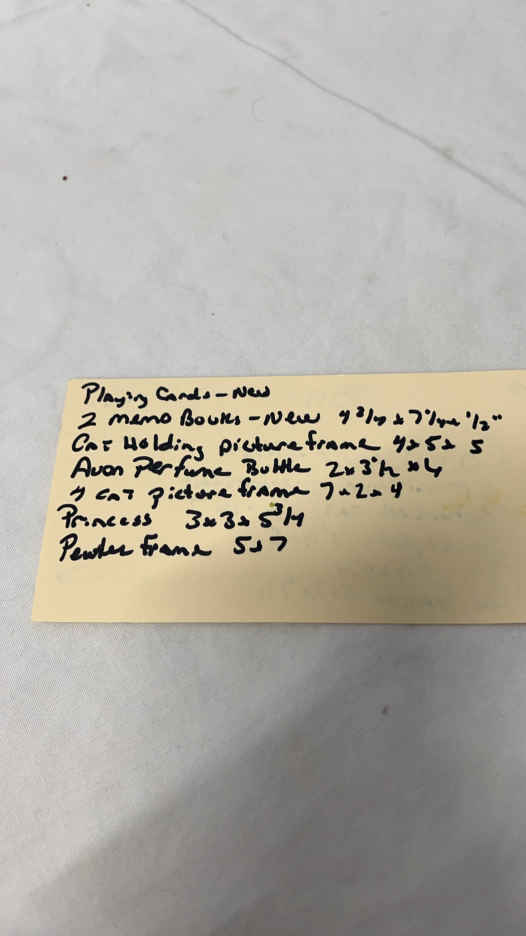 Playing Cards - New
2 memo Books - New 4 3/4 x 7 1/4 x 1/2"
Cat Holding picture frame 4 x 5 x 5
Avon Perfume Bottle 2 x 3 1/2 x
4 cat picture frame 7 x 2 x 4
Princess 3 x 3 x 5 3/4
Pewter frame 5 x 7